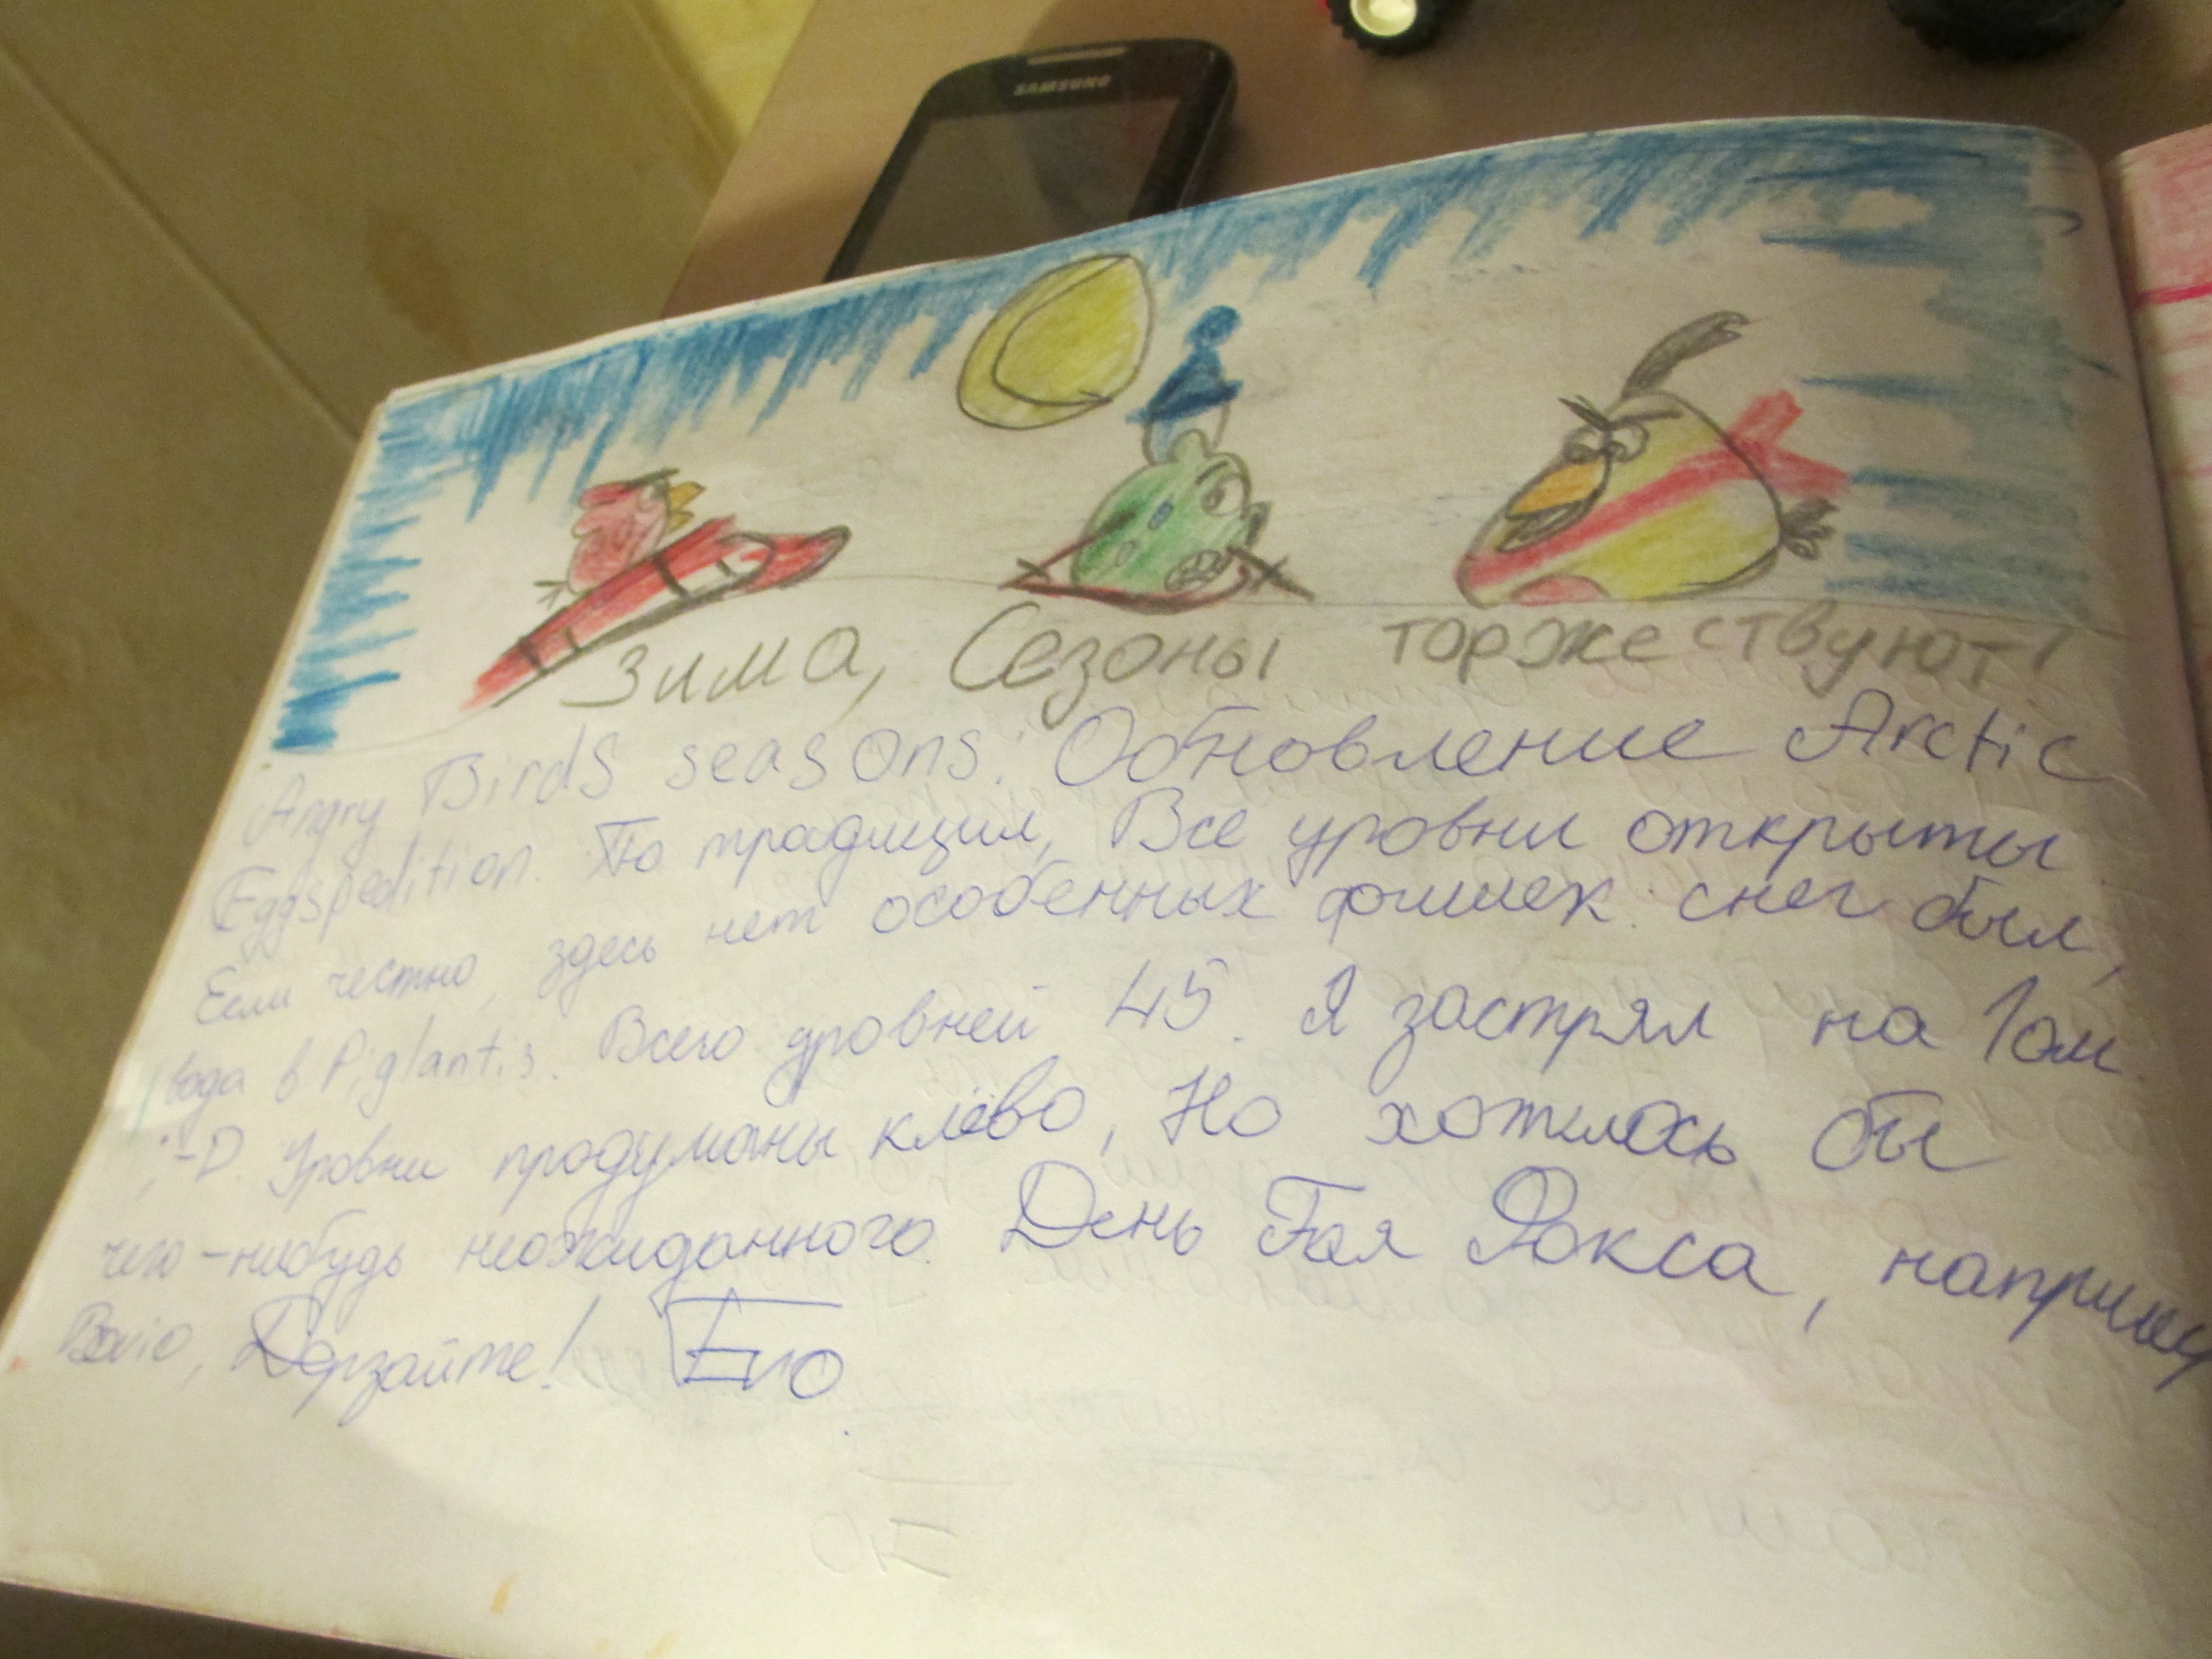 SAMSUNG
Зима, Сезоны торжествуют!
Angry Birds seasons: Обновление Arctic
Eggspedition. По традиции, Все уровни открыты.
Если честно, здесь нет особенных фишек: снег был,
вода в Piglantis. Всего уровней 45. Я застрял на 1ом
;-D. Уровни продуманы клёво, Но хотелось бы
чего-нибудь неожиданного. День Гая Фокса, например
Дерзайте!